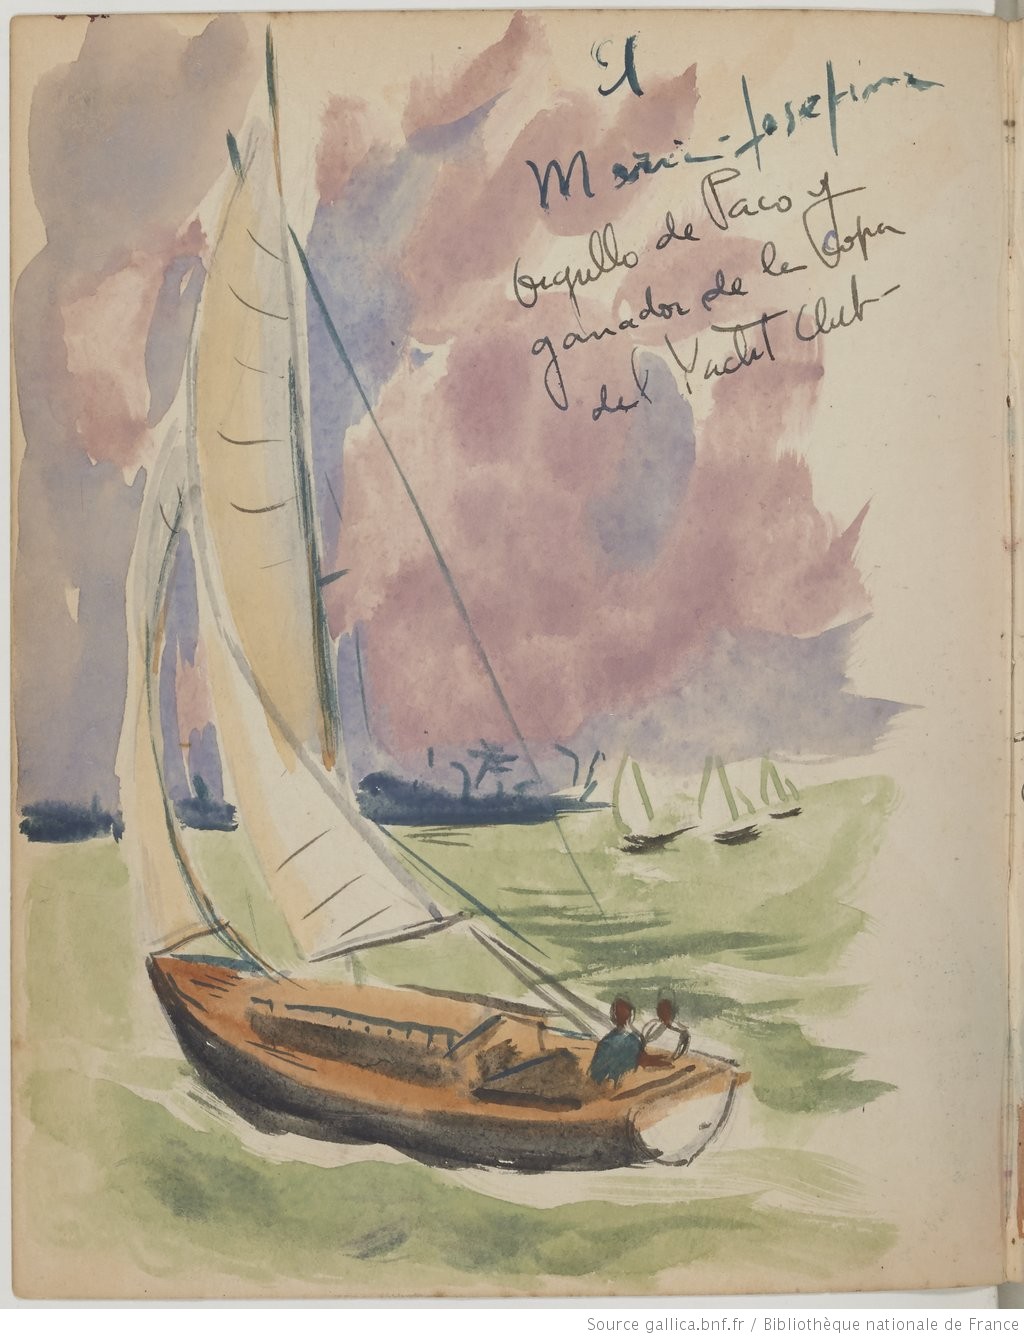 El
Maria-Josefina
Orgullo de Paco y
ganador de la Copa
del Yacht Club-
Source gallica.bnf.fr / Bibliothèque nationale de France